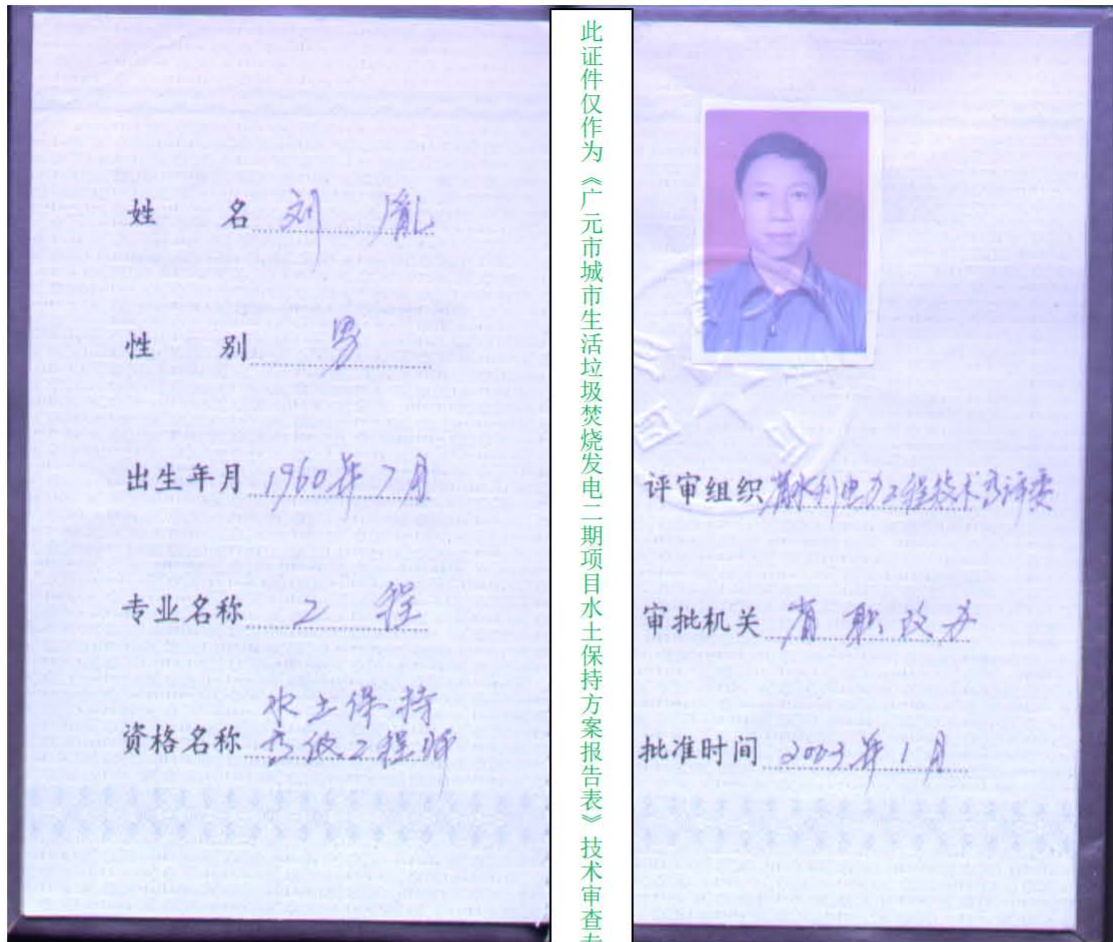 姓 名 刘 胤
性 别 男
出生年月 1960年7月
专业名称 工 程
资格名称 水土保持
高级工程师
此证件仅作为《广元市城市生活垃圾焚烧发电二期项目水土保持方案报告表》技术审查专
评审组织 省水利电力工程技术高评委
审批机关 省职改办
批准时间 2003年1月